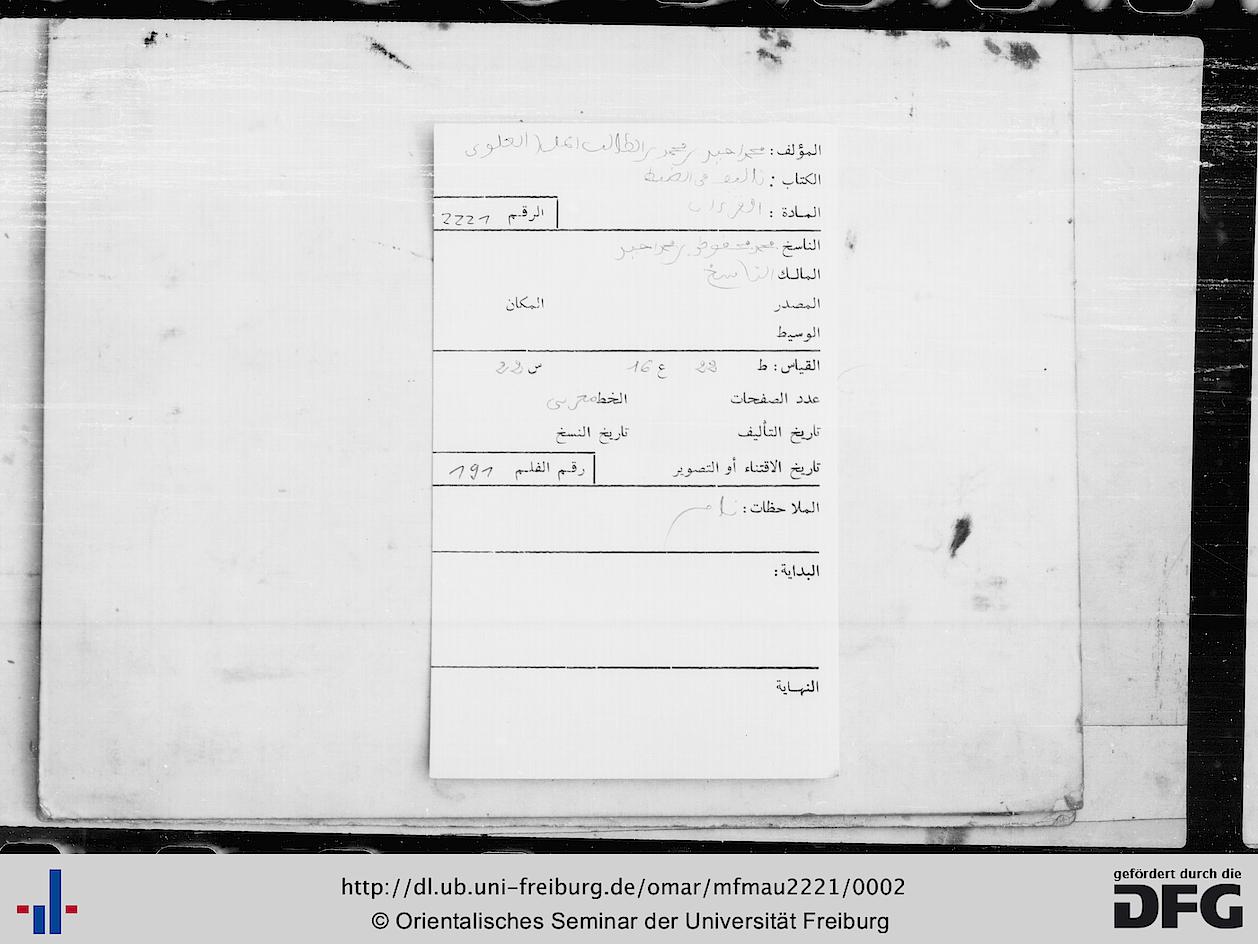 المؤلف: محمد احمد بن محمد بن الطالب العلوى
الكتاب: تاليف فى الضبط
المادة: القراءات
الرقم 2221
الناسخ محمد محفوظ بن محمد احمد
المالك الناسخ
المصدر المكان
الوسيط
القياس: ط 22 ع 16 س 22
عدد الصفحات الخط مغربى
تاريخ التأليف تاريخ النسخ
تاريخ الاقتناء أو التصوير رقم الفلم 191
الملاحظات: تام
البداية:
النهاية
http://dl.ub.uni-freiburg.de/omar/mfmau2221/0002
© Orientalisches Seminar der Universität Freiburg
gefördert durch die
DFG